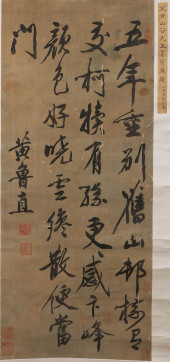 五年重別舊山邨樹有
交柯犢有孫更感卞峰
顏色好曉雲纔散便當
門
黃魯直